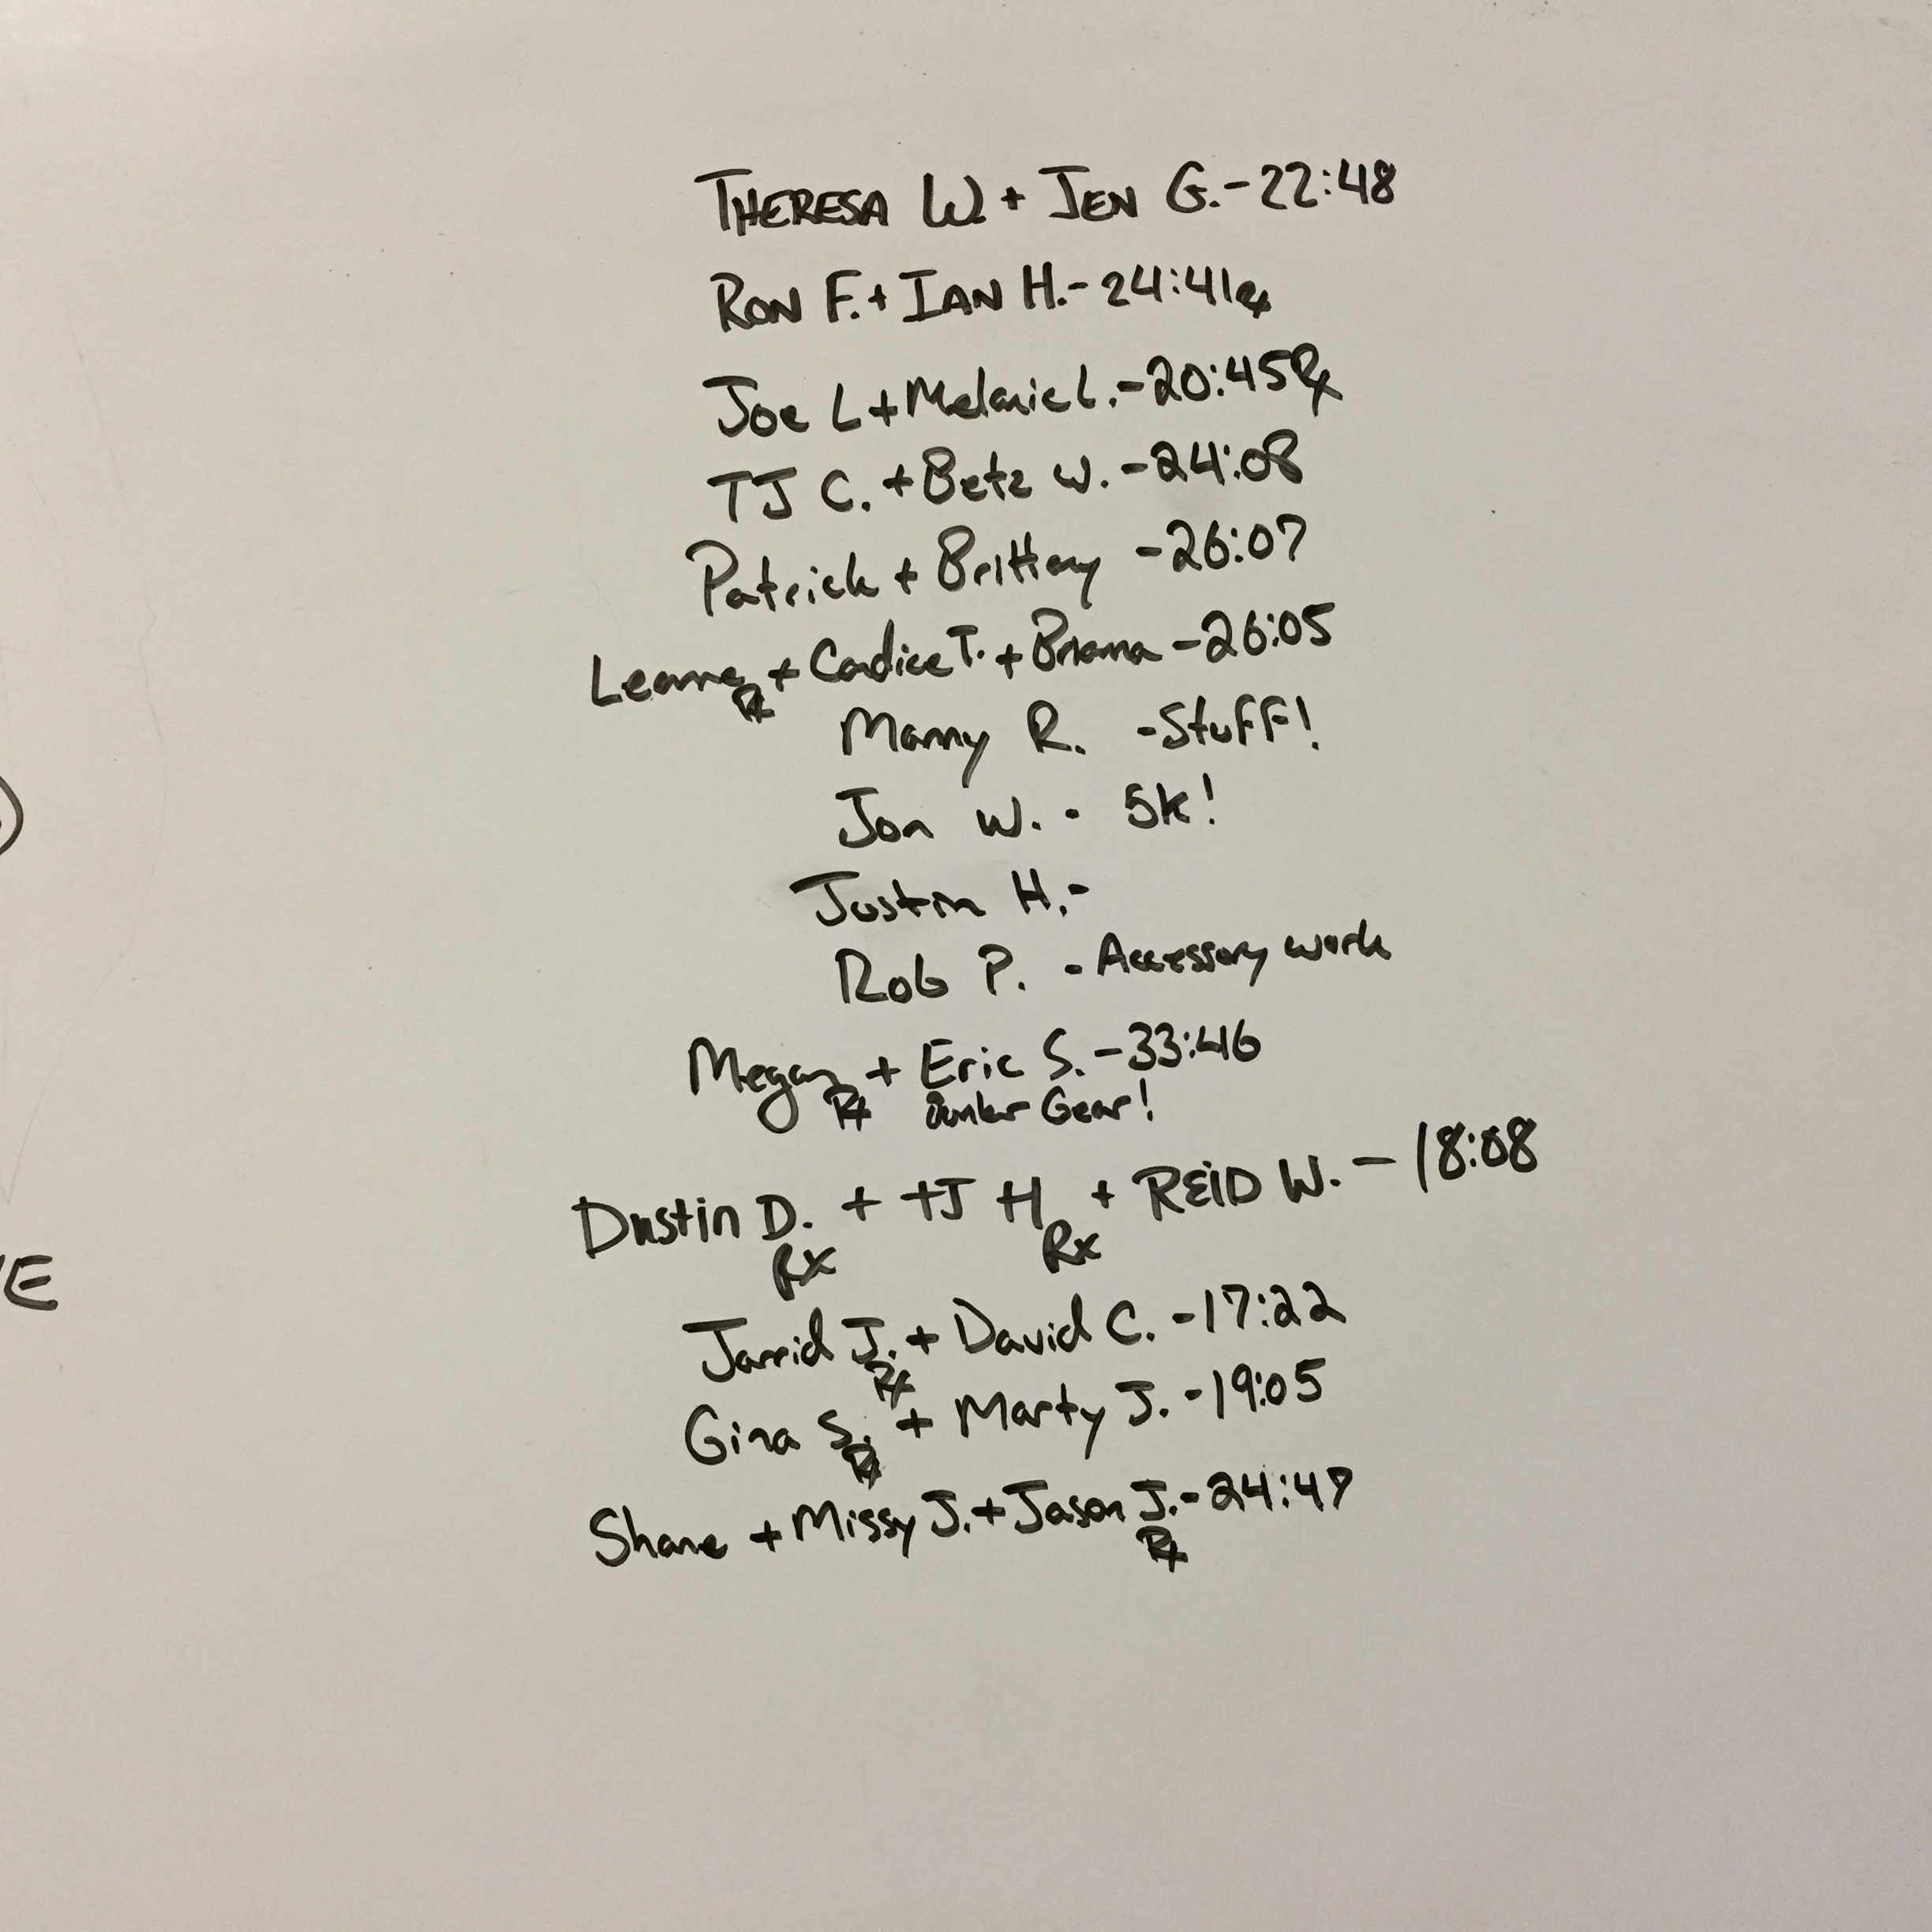 THERESA W. + JEN G. - 22:48
RON F. + IAN H. - 24:41 Rx
Joe L + Melanie L. - 20:45 Rx
TJ C. + Betz W. - 24:08
Patrick + Brittany - 26:07
Leanne + Candice T. + Brianna - 26:05
Rx
Manny R. - Stuff!
Jon W. - 5k!
Justin H. -
Rob P. - Accessory work
Megan + Eric S. - 33:46
Rx Bunker Gear!
Dustin D. + TJ H + REID W. - 18:08
Rx Rx
Jarrid J. + David C. - 17:22
Rx
Gina S. + Marty J. - 19:05
Rx
Shane + Missy J. + Jason J. - 24:47
Rx